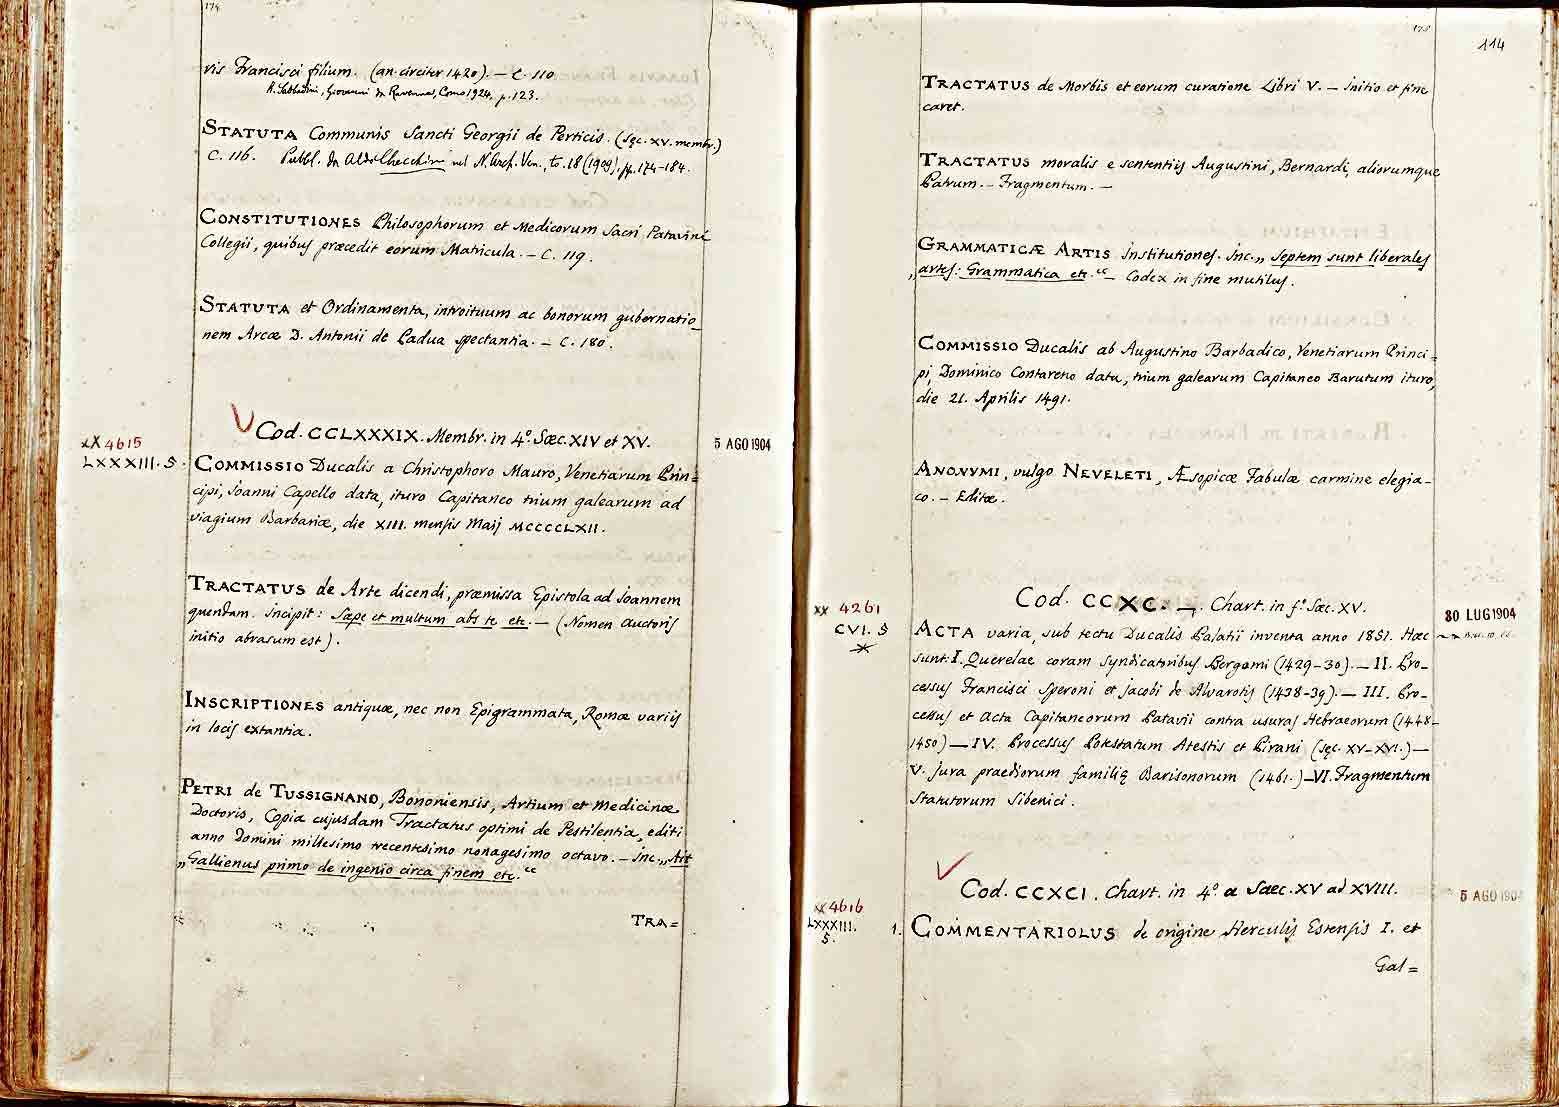 174
vis Francisci filium. (an. circiter 1420). — C. 110
R. Sabbadini, Giovanni da Ravenna, Como 1924, p. 123.
STATUTA Communis Sancti Georgii de Perticis. (Sęc. XV. membr.)
C. 116. Pubbl. da Aldo Checchini nel N. Arch. Ven., to. 18 (1909), pp. 174-184.
CONSTITUTIONES Philosophorum et Medicorum Sacri Patavini
Collegii, quibus præcedit eorum Matricula. — C. 119.
STATUTA et Ordinamenta, introituum ac bonorum gubernatio_
nem Arcæ D. Antonii de Padua spectantia. — C. 180.
V Cod. CCLXXXIX. Membr. in 4.º Sæc. XIV et XV.
XX 4615
LXXXIII. 5.
5 AGO 1904
COMMISSIO Ducalis a Christophoro Mauro, Venetiarum Prin=
cipi, Joanni Capello data, ituro Capitaneo trium galearum ad
viagium Barbariæ, die XIII. mensis Maij MCCCCLXII.
TRACTATUS de Arte dicendi, præmissa Epistola ad Joannem
quendam. Incipit: Sæpe et multum abs te etc. — (Nomen Auctoris
initio abrasum est).
INSCRIPTIONES antiquæ, nec non Epigrammata, Romæ variis
in locis extantia.
PETRI de TUSSIGNANO, Bononiensis, Artium et Medicinæ
Doctoris, Copia cujusdam Tractatus optimi de Pestilentia, editi
anno Domini millesimo trecentesimo nonagesimo octavo. — Inc. „Ait
„Gallienus primo de ingenio circa finem etc.“
TRA=
175
114
TRACTATUS de Morbis et eorum curatione Libri V. — Initio et fine
caret.
TRACTATUS moralis e sententiis Augustini, Bernardi, aliorumque
Patrum. — Fragmentum. —
GRAMMATICÆ ARTIS Institutiones. Inc. „Septem sunt liberales
„artes: Grammatica etc.“ — Codex in fine mutilus.
COMMISSIO Ducalis ab Augustino Barbadico, Venetiarum Princi=
pi, Dominico Contareno data, trium galearum Capitaneo Barutum ituro,
die 21. Aprilis 1491.
ANONYMI, vulgo NEVELETI, Æsopicæ Fabulæ carmine elegia-
co. — Editæ.
Cod. CCXC. —. Chart. in fº. Sæc. XV.
XX 4261
CVI. 5
30 LUG 1904
ACTA varia, sub tectu Ducalis Palatii inventa anno 1851. Hæc
sunt: I. Querelae coram Syndicatoribus Bergomi (1429-30). — II. Pro-
cessus Francisci Speroni et Jacobi de Alvarotis (1438-39). — III. Pro-
cessus et Acta Capitaneorum Patavii contra usuras Hebraeorum (1448-
1450) — IV. Processus Potestatum Atestis et Pirani (sęc. XV-XVI.) —
V. Jura praediorum familię Barisonorum (1461.) — VI. Fragmentum
Statutorum Sibenici.
V Cod. CCXCI. Chart. in 4.º a Sæc. XV ad XVIII.
XX 4616
LXXXIII.
5.
5 AGO 1904
1. COMMENTARIOLUS de origine Herculis Estensis I. et
Gal=